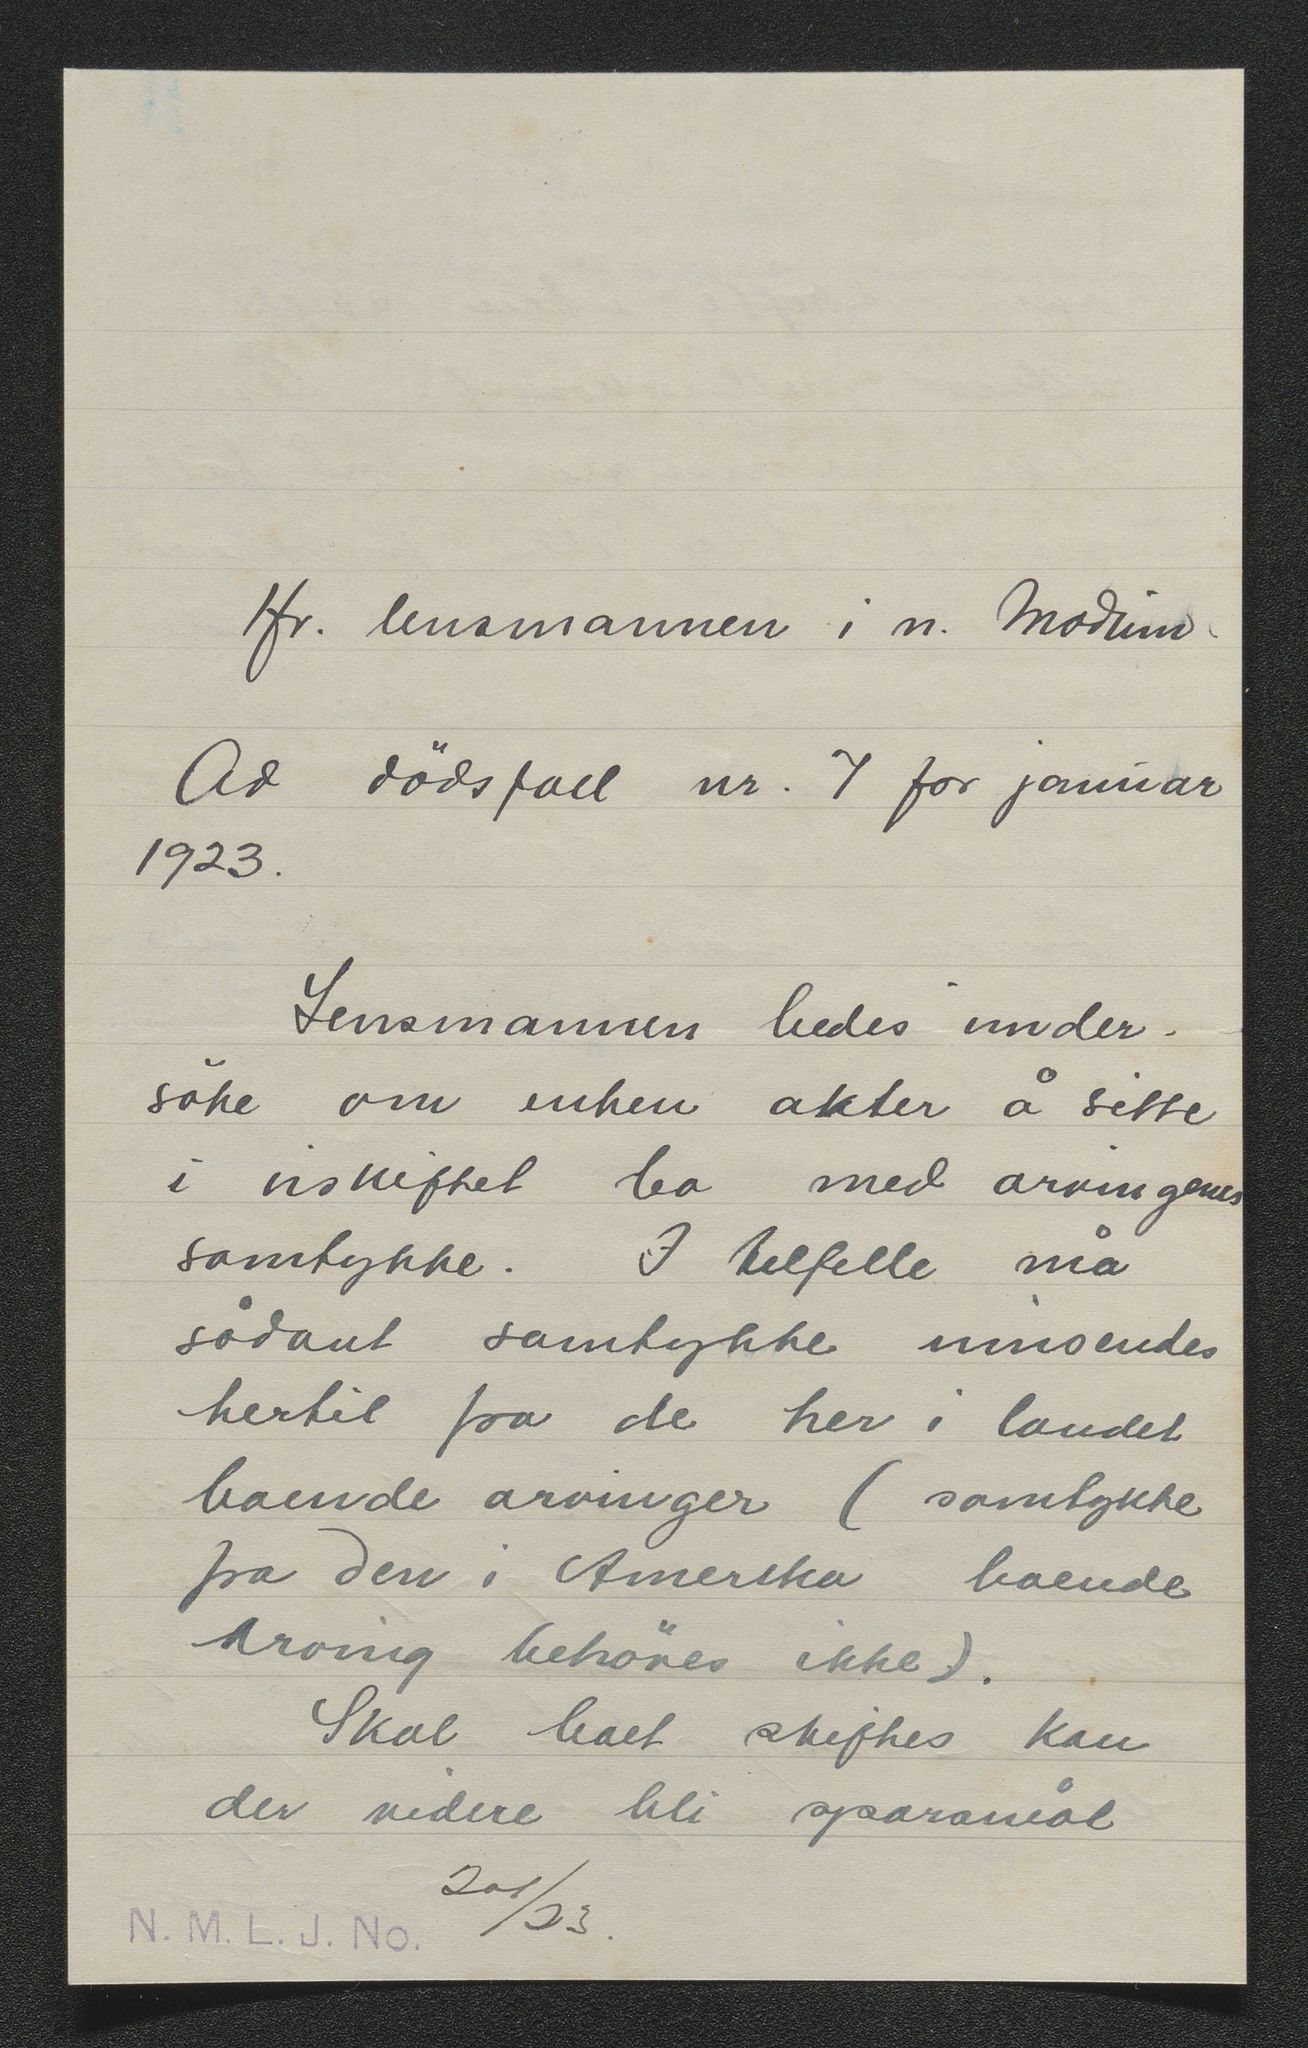 Hr. lensmannen i n. Modum
Ad dödsfall nr. 7 for januar
1923.
Lensmannen bedes under-
söke om enken akter å sitte
i uskiftet bo med arvingenes
samtykke. I tilfelle må
sådant samtykke innsendes
hertil fra de her i landet
boende arvinger (samtykke
fra den i Amerika boende
Arving behöves ikke).
Skal boet skiftes kan
der videre bli spörsmål
201/23.
N. M. L. J. No.